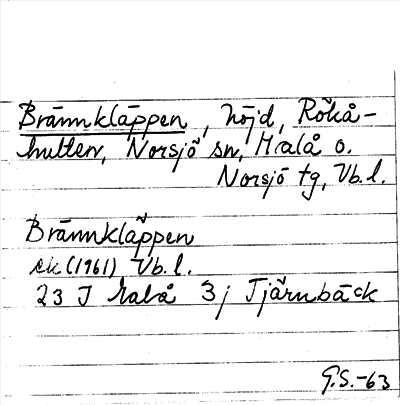 Brännkläppen, höjd, Rökå-
hulten, Norsjö sn, Malå o.
Norsjö tg, Vb. l.
Brännkläppen
ek (1961) Vb. l.
23 J Malå 3j Tjärnbäck
G.S.-63